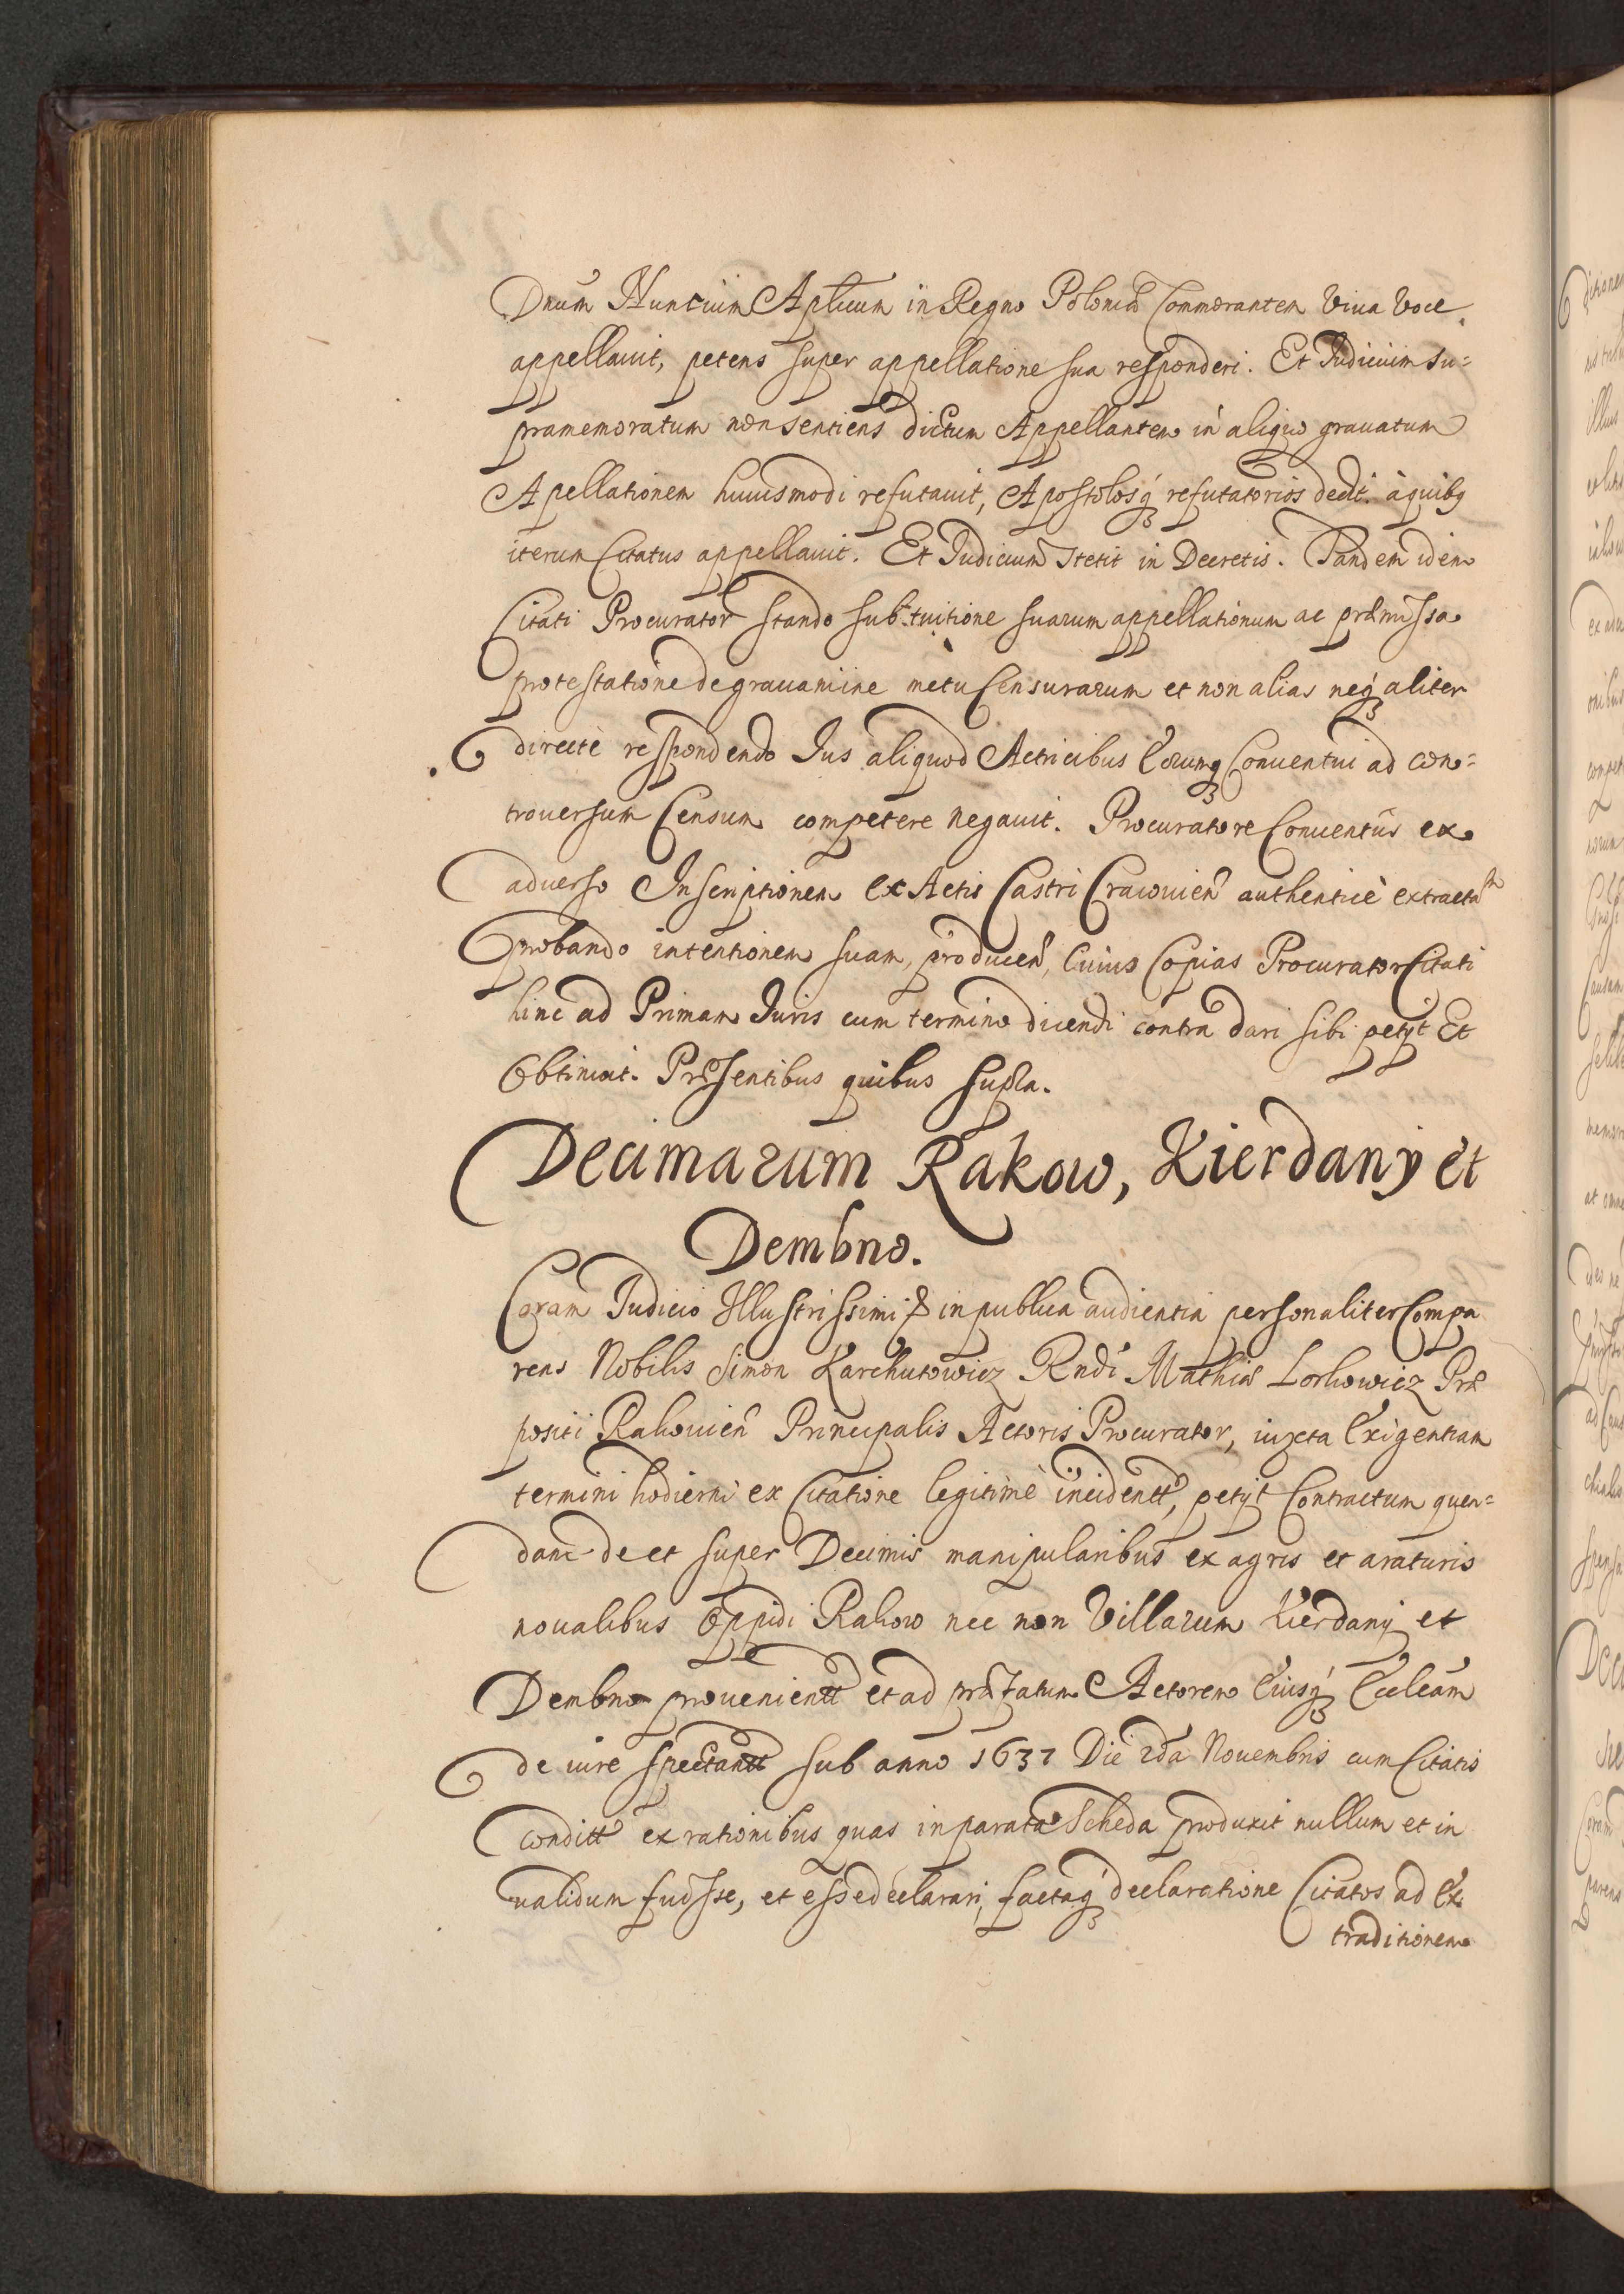 Dnum Nuncium Aplicum in Regno Poloniæ Commorantem Viua Voce
appellauit, petens super appellatione sua responderi. Et Judicium su=
pramemoratum non sentiens dictum Appellantem in aliquo grauatum
Apellationem huiusmodi refutauit, Apostolosq₃ refutatorios dedit. à quibq
iterum Citatus appellauit. Et Judicium stetit in Decretis. Tandem idem
Citati Procurator stando sub tuitione suarum appellationum ac præmissa
protestatione de grauamine metu Censurarum et non alias neq₃ aliter
directè respondendo Jus aliquod Actricibus Earumq₃ Conuentui ad con=
trouersum Censum competere negauit. Procuratore Conuentûs ex
aduerso Inscriptionem ex Actis Castri Cracouien̄ authenticè extractam
probando intentionem suam, producen̄, Cuius Copias Procurator Citati
hinc ad Primam Juris cum termino dicendi contra dari sibi petyt Et
Obtinuit. Præsentibus quibus supra.
Decimarum Rakow, Kierdany et
Dembno.
Coram Judicio Illustrissimi & in publica audientia personaliter Compa
rens Nobilis Simon Karchutowicz Rndi Mathiæ Lorkowicz Præ
positi Rakouien̄ Principalis Actoris Procurator, iuxta Exigentiam
termini hodierni ex Citatione legitimè incidentt, petyt Contractum quen=
dam de et super Decimis manipularibus ex agris et araturis
noualibus Oppidi Rakow nec non Villarum Kierdany et
Dembno prouenientt et ad præfatum Actorem Eiusq₃ Eccleām
de iure spectantt sub anno 1637 Die 2da Nouembris cum Citatis
conditt ex rationibus quas in parata Scheda produxit nullum et in
ualidum fuisse, et esse declarari, factaq₃ declaratione Citatos ad Ex
traditionem